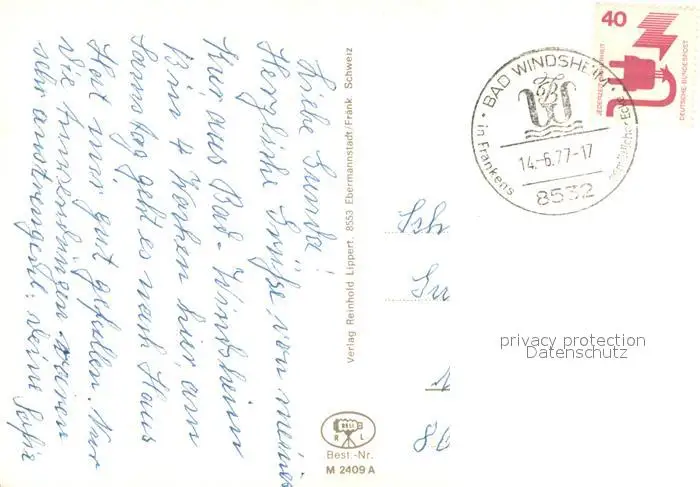 Liebe Gunda!
Herzliche Grüße von meiner
Kur aus Bad-Windsheim
Bin 4 Wochen hier, am
Samstag geht es nach Haus
Hat mir gut gefallen. Nur
die Anwendungen waren
sehr anstrengend. Deine Sofie
Verlag Reinhold Lippert, 8553 Ebermannstadt/Fränk. Schweiz
RELI
R L B
Best.-Nr.
M 2409 A
40
JEDERZEIT SICHERHEIT
DEUTSCHE BUNDESPOST
BAD WINDSHEIM
in Frankens gemütlicher Ecke
14.-6.77-17
8532
Sch
Gu
80
privacy protection
Datenschutz